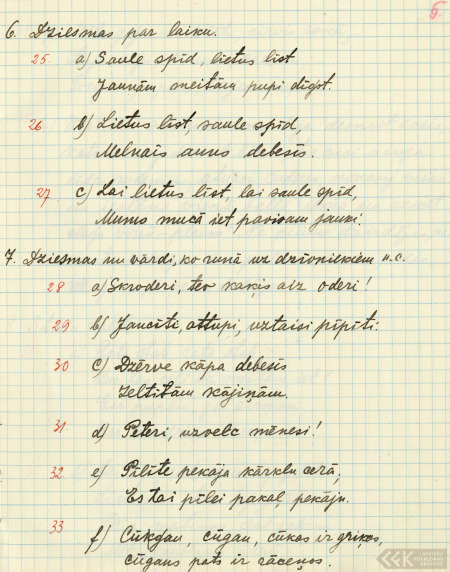 5.
6. Dziesmas par laiku.
25. a) Saule spīd, lietus līst
Jaunām meitām pupi dīgst.
26 b) Lietus līst, saule spīd,
Melnais auns debesīs.
27 c) Lai lietus līst, lai saule spīd,
Mums mucā iet pavisam jauki.
7. Dziesmas un vārdi, ko runā uz dzīvniekiem u.c.
28 a) Skroderi, tev kaķis aiz oderi!
29 b) Jancīti, attupi, uztaisi pīpīti.
30 c) Dzērve kāpa debesīs
Zeltītām kājiņām.
31. d) Pēteri, uzvelc mēnesi!
32. e) Pīlīte pekāja kārklu cerā,
Es tai pīlei pakaļ pekāju.
33 f) Cūkgan, cūgan, cūkas ir griķos,
cūgans pats ir rāceņos.
LATVIEŠU FOLKLORAS KRĀTUVE